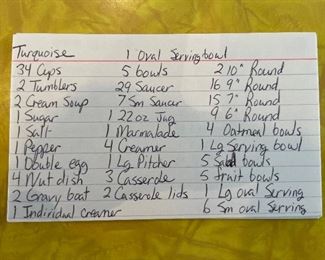 Turquoise 1 Oval Serving bowl
34 Cups 5 bowls 2 10" Round
2 Tumblers 29 Saucer 16 9" Round
2 Cream Soup 7 Sm Saucer 15 7" Round
1 Sugar 1 22oz Jug 9 6" Round
1 Salt 1 Marmalade 4 Oatmeal bowls
1 Pepper 4 Creamer 1 Lg Serving bowl
1 Double egg 1 Lg Pitcher 5 Salad bowls
4 Nut dish 3 Casserole 5 fruit bowls
2 Gravy boat 2 Casserole lids 1 Lg oval Serving
1 Individual Creamer 6 Sm oval Serving